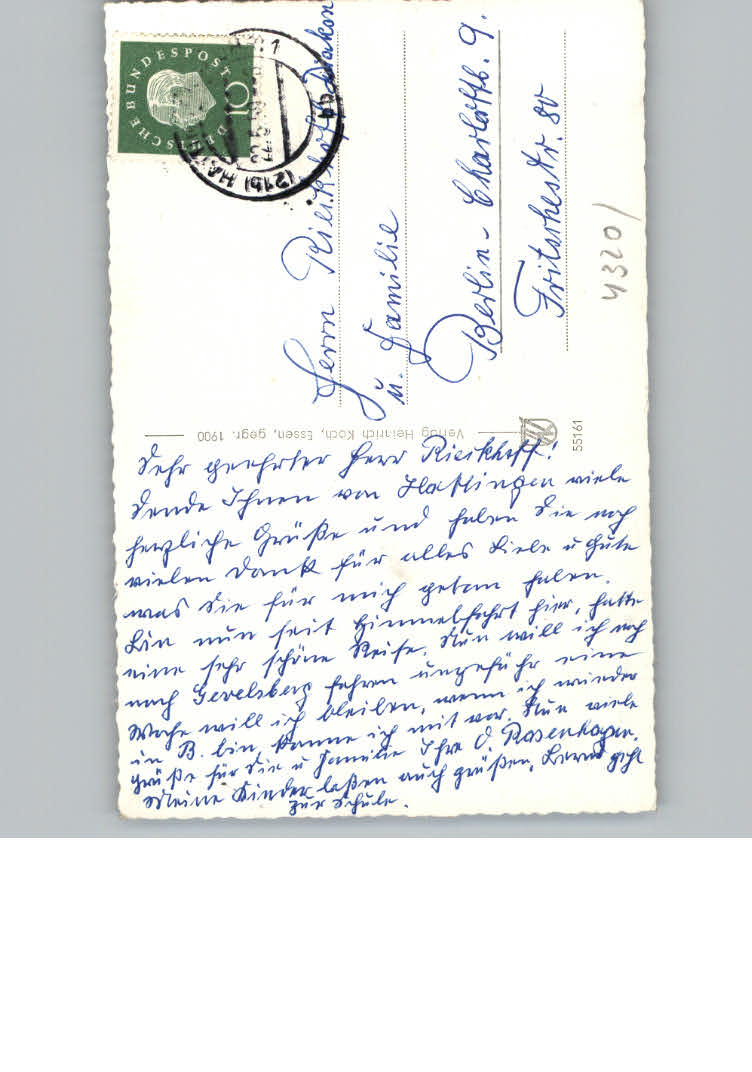 DEUTSCHE BUNDESPOST
10
(21b) HATTINGEN
Herrn Rieckhoff Diakon
u. Familie
Berlin-Charlottb. 9.
Fritschestr. 80
4320/
Verlag Heinrich Koch, Essen, gegr. 1900
55161
Sehr geehrter Herr Rieckhoff!
Sende Ihnen von Hattingen viele
herzliche Grüße und haben Sie noch
vielen Dank für alles Liebe u Gute
was Sie für mich getan haben.
Bin nun seit Himmelfahrt hier, hatte
eine sehr schöne Reise. Nun will ich noch
nach Gevelsberg fahren ungefähr eine
Woche will ich bleiben, wenn ich wieder
in B. bin, komme ich mit vor. Nun viele
Grüße für Sie u Familie Ihre O. Rosenhagen.
Meine Kinder laßen auch grüßen, Bernd geht
zur Schule.